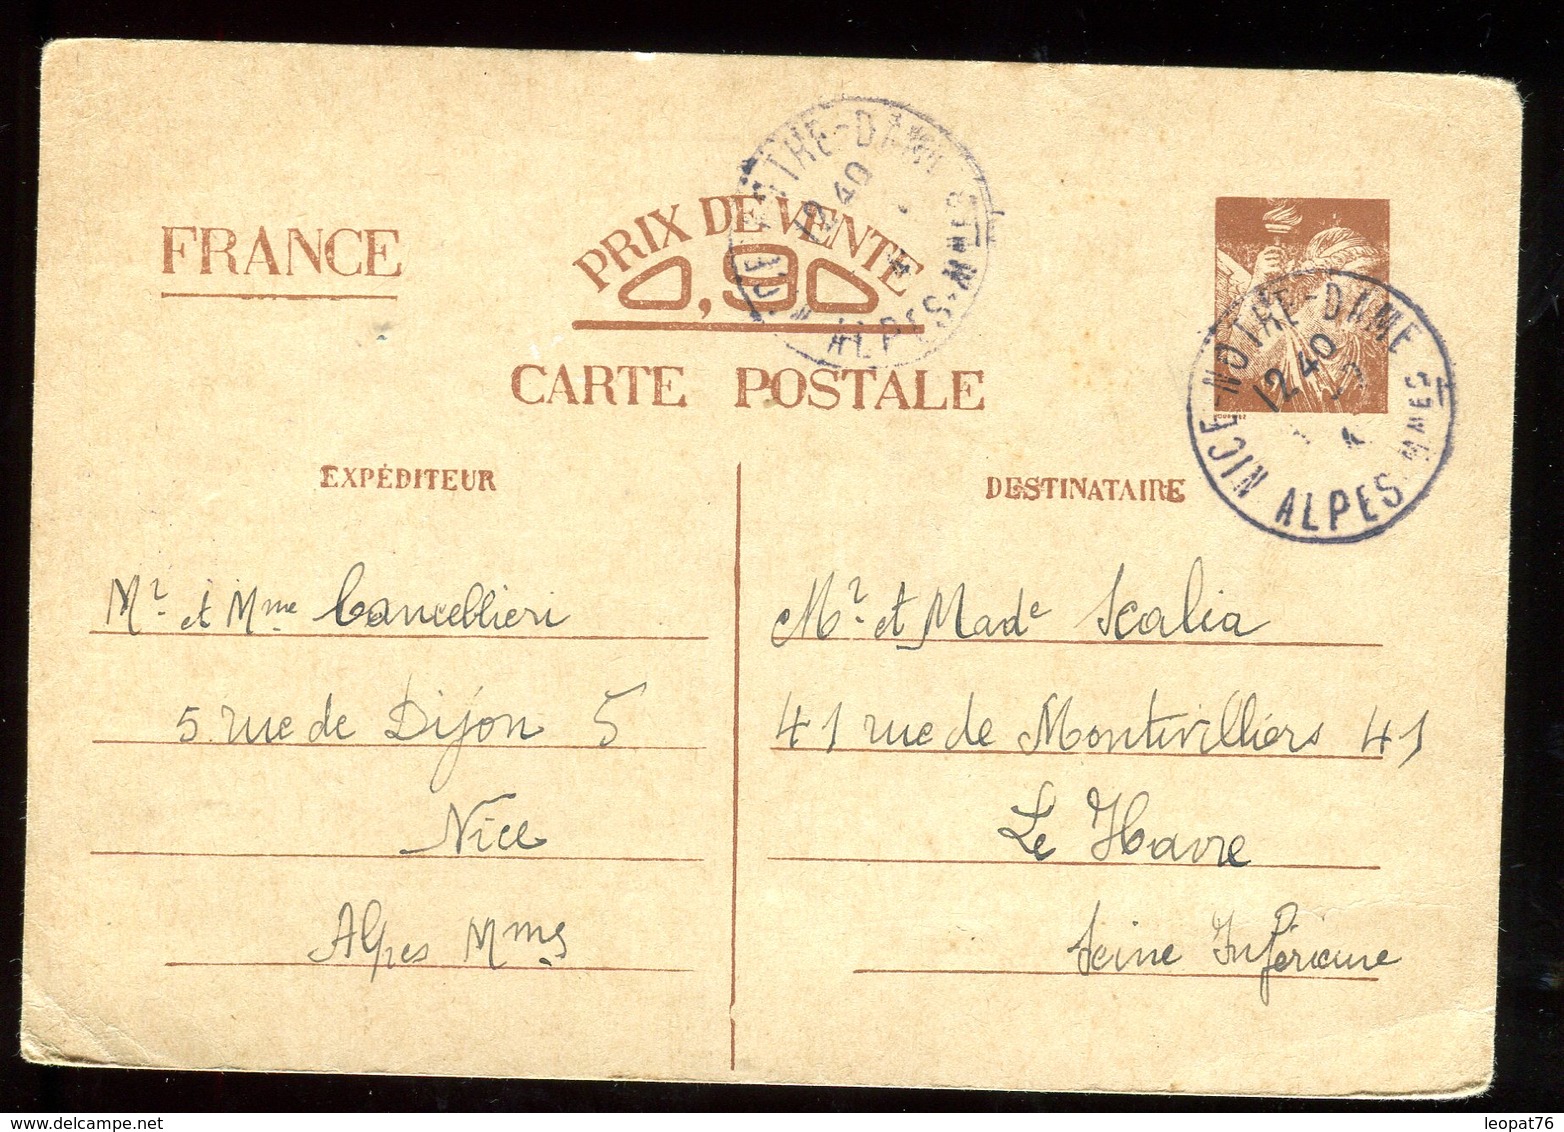 FRANCE
PRIX DE VENTE
0,90
CARTE POSTALE
NOTRE-DAME
12 40
ALPES-MMES
NICE-NOTRE-DAME
12 40
ALPES-MMES
EXPÉDITEUR
Mr. et Mme Cancellieri
5 rue de Dijon 5
Nice
Alpes Mmes
DESTINATAIRE
Mr. et Made Scalia
41 rue de Montivilliers 41
Le Havre
Seine Inférieure
delcampe.net
leopat76